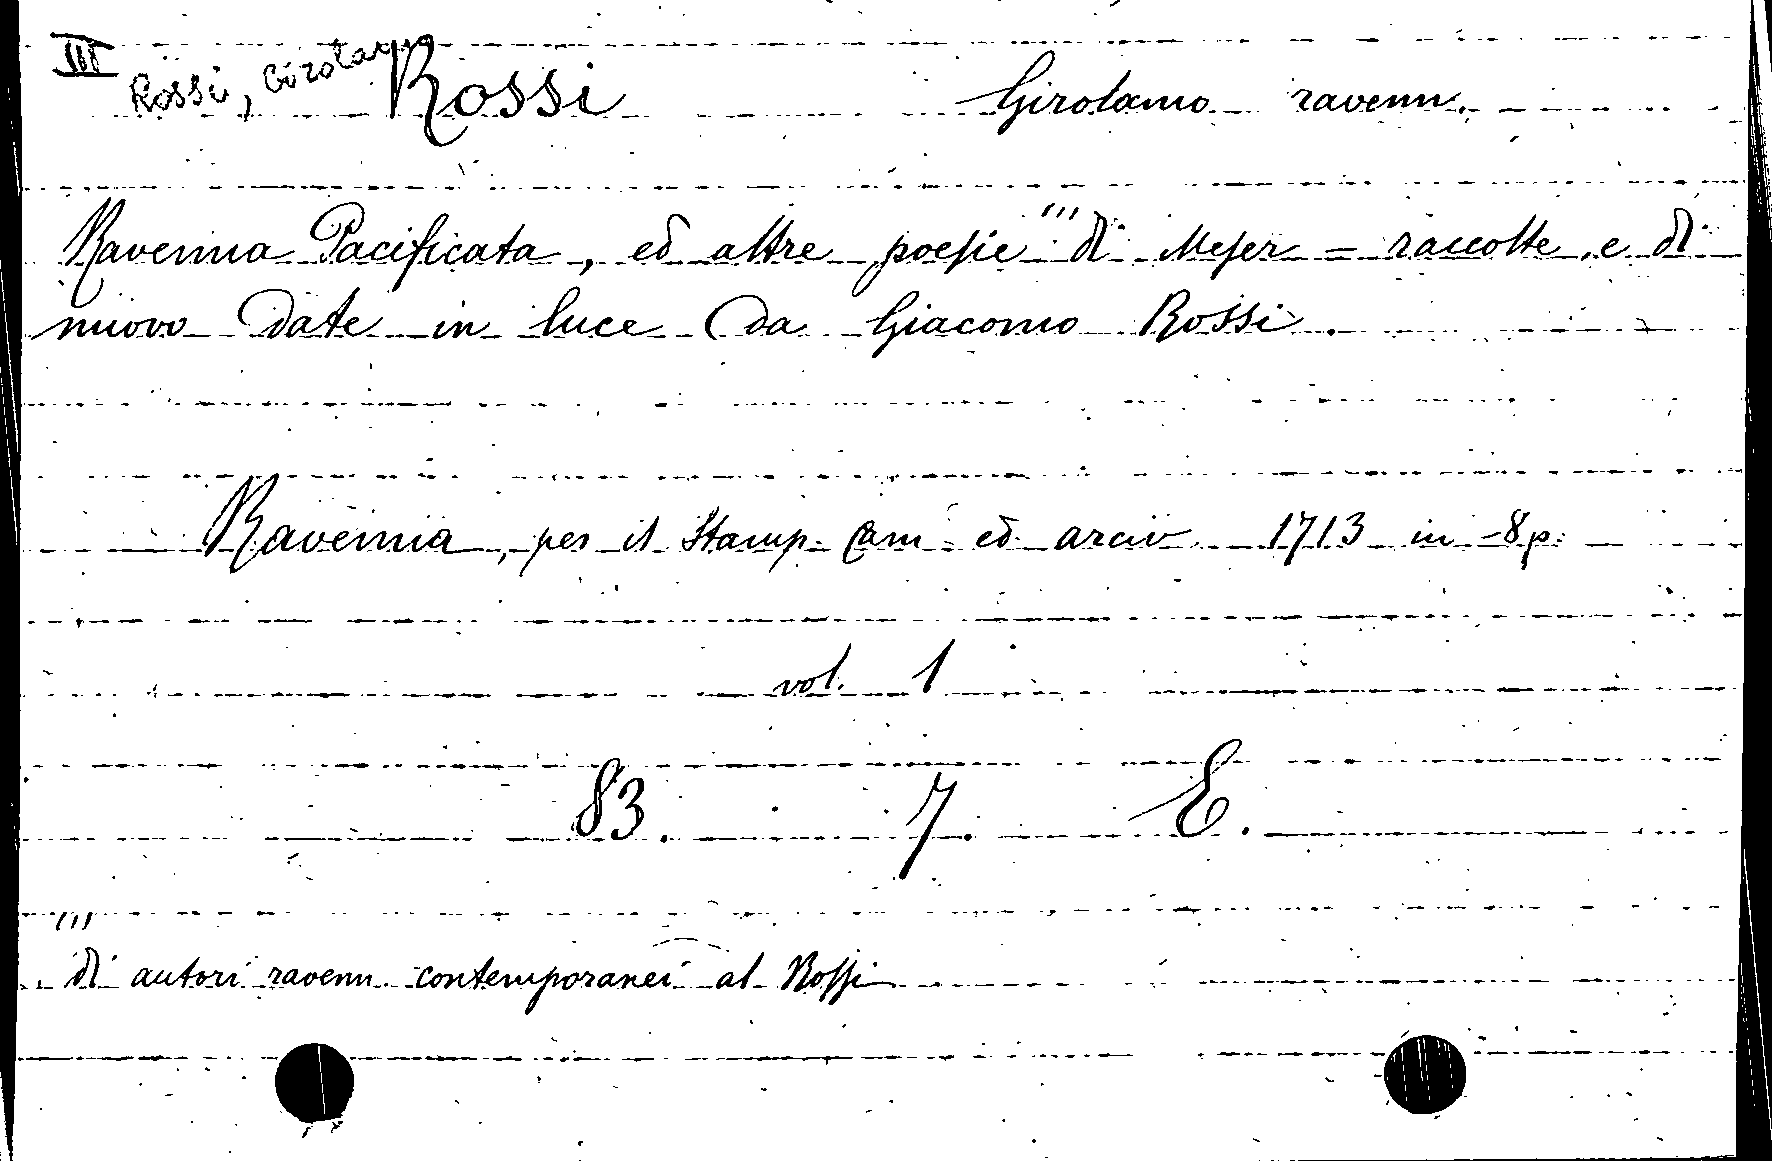 III Rossi, Girolamo
Rossi Girolamo ravenn.
Ravenna Pacificata, ed altre poesie (1) di Messer = raccolte e di
nuovo date in luce da Giacomo Rossi.
Ravenna, per il Stamp. Cam. ed arciv. 1713 in-8p.
vol. 1
83. 7. E.
(1)
di autori ravenn. contemporanei al Rossi